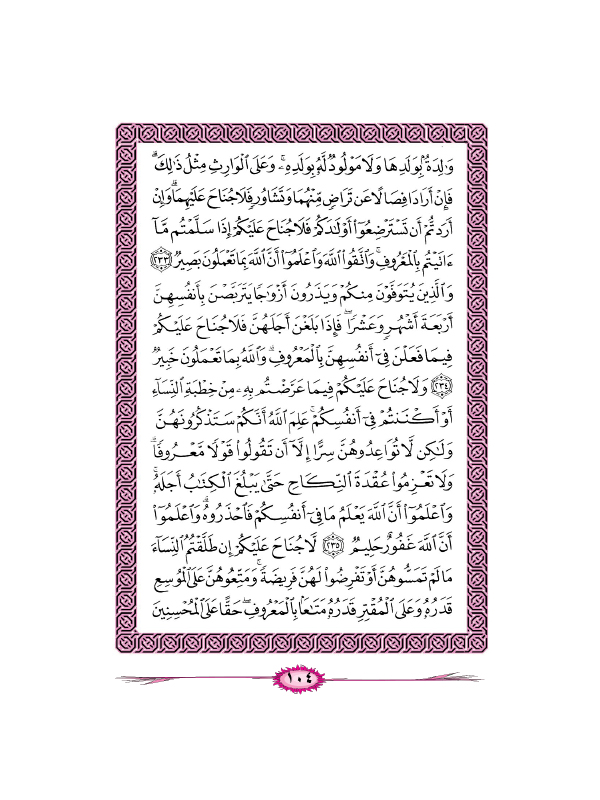 وَٰلِدَةُۢ بِوَلَدِهَا وَلَا مَوْلُودٞ لَّهُۥ بِوَلَدِهِۦۚ وَعَلَى ٱلْوَارِثِ مِثْلُ ذَٰلِكَۗ
فَإِنْ أَرَادَا فِصَالًا عَن تَرَاضٖ مِّنْهُمَا وَتَشَاوُرٖ فَلَا جُنَاحَ عَلَيْهِمَاۗ وَإِنْ
أَرَدتُّمْ أَن تَسْتَرْضِعُوٓا۟ أَوْلَٰدَكُمْ فَلَا جُنَاحَ عَلَيْكُمْ إِذَا سَلَّمْتُم مَّآ
ءَاتَيْتُم بِٱلْمَعْرُوفِۗ وَٱتَّقُوا۟ ٱللَّهَ وَٱعْلَمُوٓا۟ أَنَّ ٱللَّهَ بِمَا تَعْمَلُونَ بَصِيرٞ ٢٣٣
وَٱلَّذِينَ يُتَوَفَّوْنَ مِنكُمْ وَيَذَرُونَ أَزْوَٰجٗا يَتَرَبَّصْنَ بِأَنفُسِهِنَّ
أَرْبَعَةَ أَشْهُرٖ وَعَشْرٗاۖ فَإِذَا بَلَغْنَ أَجَلَهُنَّ فَلَا جُنَاحَ عَلَيْكُمْ
فِيمَا فَعَلْنَ فِىٓ أَنفُسِهِنَّ بِٱلْمَعْرُوفِۗ وَٱللَّهُ بِمَا تَعْمَلُونَ خَبِيرٞ
٢٣٤ وَلَا جُنَاحَ عَلَيْكُمْ فِيمَا عَرَّضْتُم بِهِۦ مِنْ خِطْبَةِ ٱلنِّسَآءِ
أَوْ أَكْنَنتُمْ فِىٓ أَنفُسِكُمْۚ عَلِمَ ٱللَّهُ أَنَّكُمْ سَتَذْكُرُونَهُنَّ
وَلَٰكِن لَّا تُوَاعِدُوهُنَّ سِرًّا إِلَّآ أَن تَقُولُوا۟ قَوْلٗا مَّعْرُوفٗاۚ
وَلَا تَعْزِمُوا۟ عُقْدَةَ ٱلنِّكَاحِ حَتَّىٰ يَبْلُغَ ٱلْكِتَٰبُ أَجَلَهُۥۚ
وَٱعْلَمُوٓا۟ أَنَّ ٱللَّهَ يَعْلَمُ مَا فِىٓ أَنفُسِكُمْ فَٱحْذَرُوهُۚ وَٱعْلَمُوٓا۟
أَنَّ ٱللَّهَ غَفُورٌ حَلِيمٞ ٢٣٥ لَّا جُنَاحَ عَلَيْكُمْ إِن طَلَّقْتُمُ ٱلنِّسَآءَ
مَا لَمْ تَمَسُّوهُنَّ أَوْ تَفْرِضُوا۟ لَهُنَّ فَرِيضَةٗۚ وَمَتِّعُوهُنَّ عَلَى ٱلْمُوسِعِ
قَدَرُهُۥ وَعَلَى ٱلْمُقْتِرِ قَدَرُهُۥ مَتَٰعَۢا بِٱلْمَعْرُوفِۖ حَقًّا عَلَى ٱلْمُحْسِنِينَ
١٠٤